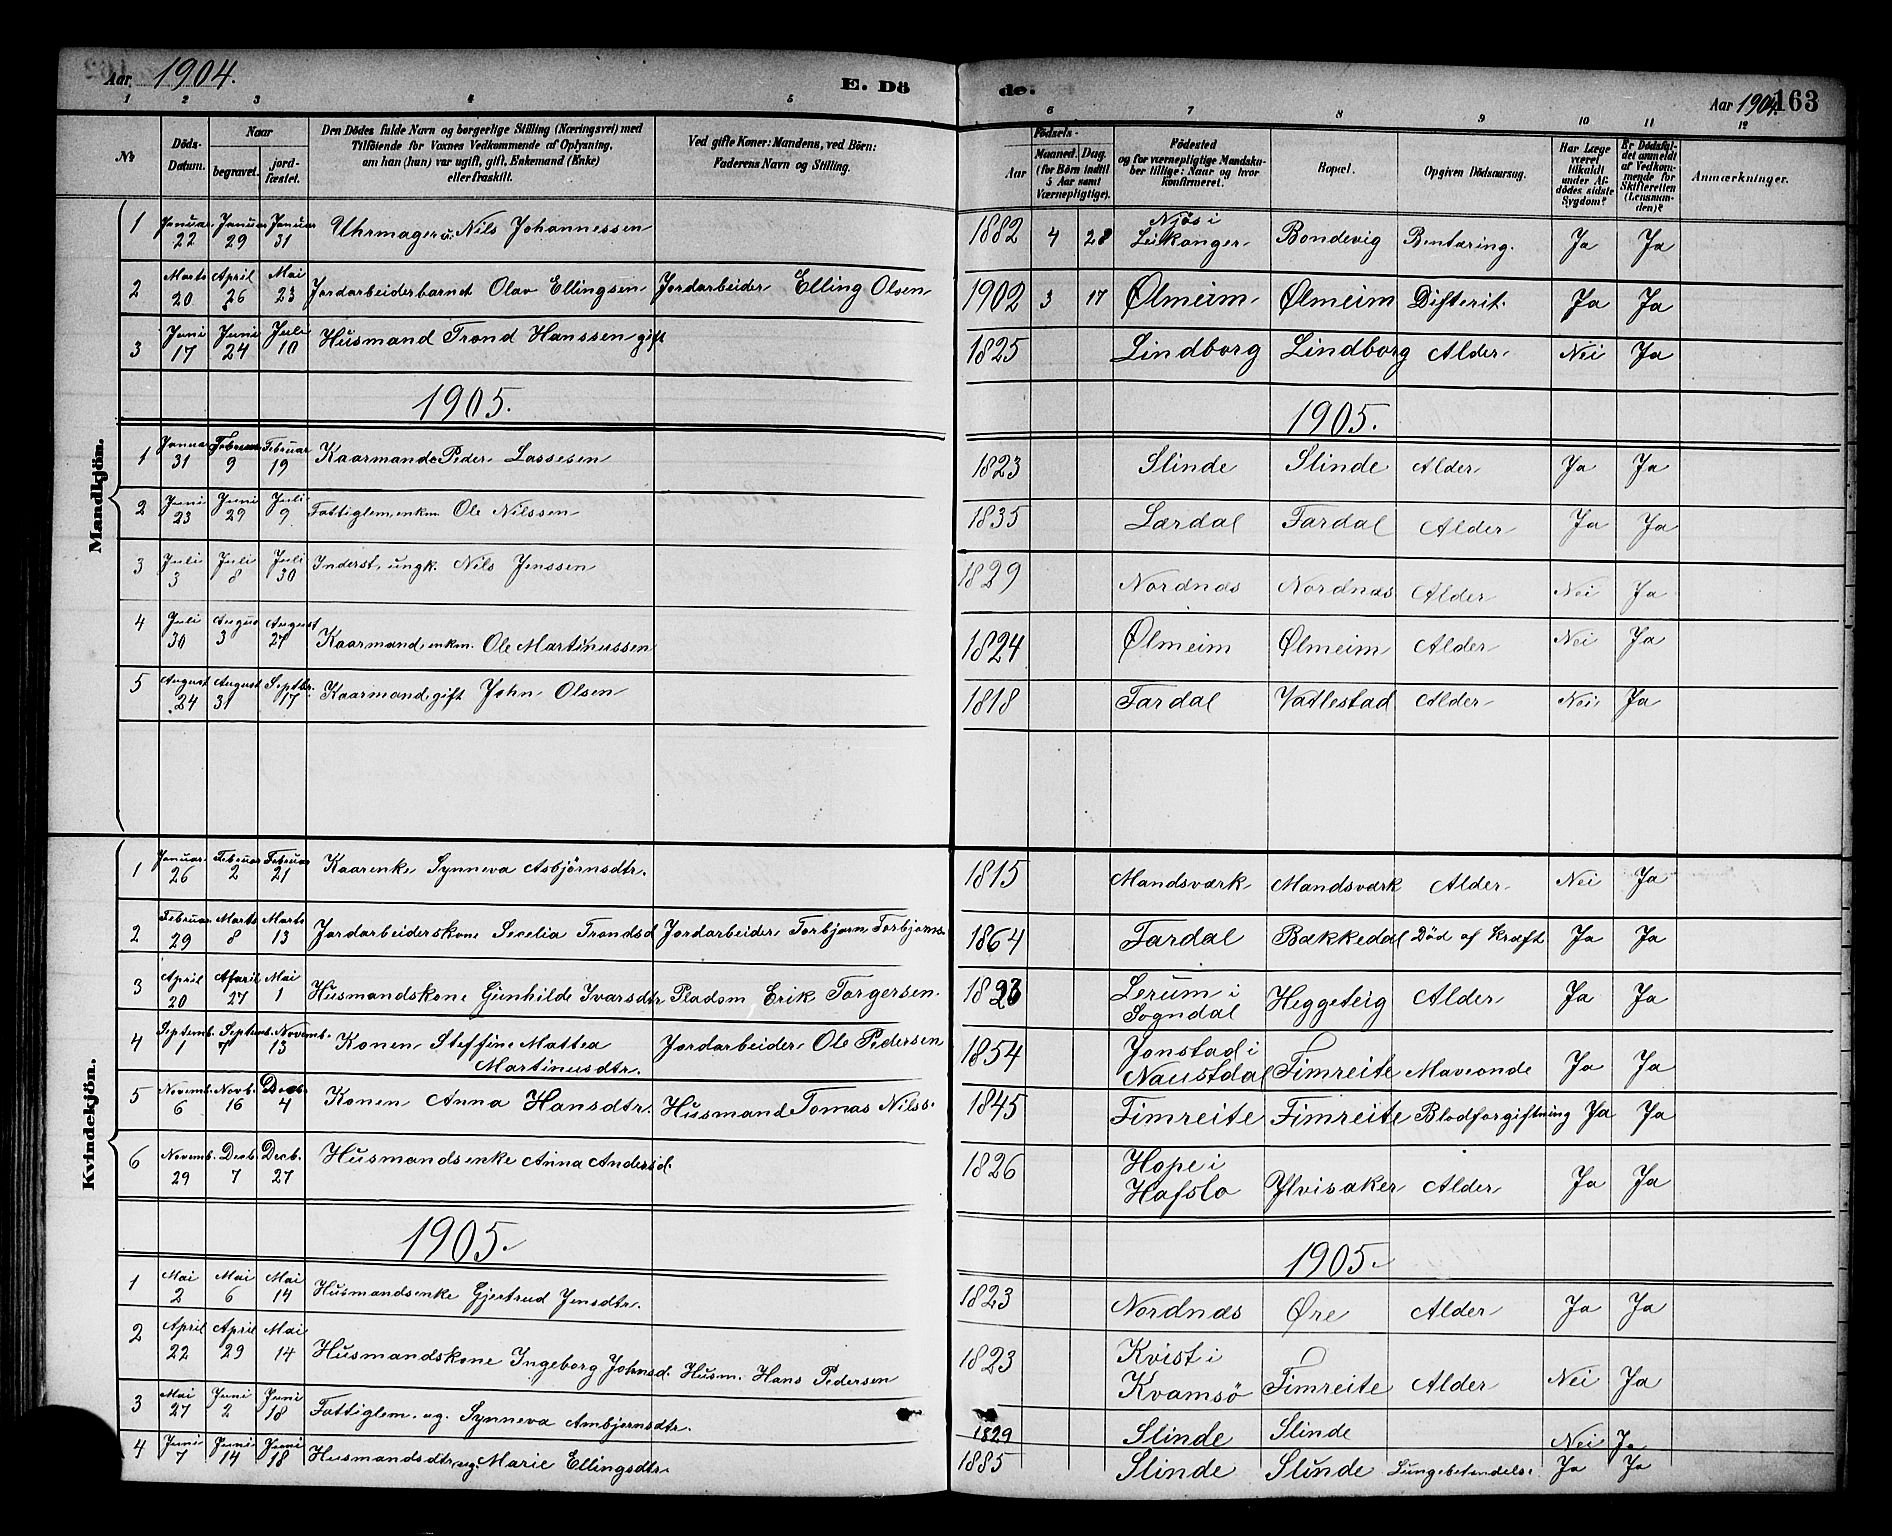 Aar 1904. E. Dö
de. Aar 1904. 163
1 2 3 4 5 6 7 8 9 10 11 12
No
Döds-Datum.
Naar
begravet.
jord-fæstet.
Den Dödes fulde Navn og borgerlige Stilling (Næringsvei) med
Tilföiende for Voxnes Vedkommende af Oplysning,
om han (hun) var ugift, gift, Enkemand (Enke)
eller fraskilt.
Ved gifte Koner: Mandens, ved Börn:
Faderens Navn og Stilling.
Födsels-
Aar
Maaned. Dag.
(for Börn indtil
5 Aar samt
Værnepligtige).
Födested
og for værnepligtige Mandska-
ber tillige: Naar og hvor
konfirmeret.
Bopæl.
Opgiven Dödsaarsag.
Har Læge
været
tilkaldt
under Af-
dödes sidste
Sygdom?
Er Dödsfal-
det anmeldt
af Vedkom-
mende for
Skifteretten
(Lensman-
den)?
Anmærkninger.
Mandkjön.
1 Januar 22 Januar 29 Januar 31 Uhrmager u. Nils Johannessen 1882 4 28 Njøs i Leikanger Bondevig Bentæring. Ja Ja
2 Marts 20 April 26 Mai 23 Jordarbeiderbarnet Olav Ellingsen Jordarbeider Elling Olsen 1902 3 17 Ølmeim Ølmeim Difterit. Ja Ja
3 Juni 17 Juni 24 Juli 10 Husmand Trond Hanssen gift 1825 Lindborg Lindborg Alder Nei Ja
1905. 1905.
1 Januar 31 Februar 9 Februar 19 Kaarmand Peder Lassesen 1823 Slinde Slinde Alder Ja Ja
2 Juni 23 Juni 29 Juli 9 Fattiglem, enkm. Ole Nilssen 1835 Lærdal Fardal Alder Ja Ja
3 Juli 3 Juli 8 Juli 30 Inderst, ungk. Nils Jenssen 1829 Nordnæs Nordnæs Alder Nei Ja
4 Juli 30 Augus 3 August 27 Kaarmand, enkm. Ole Martinussen 1824 Ølmeim Ølmeim Alder Nei Ja
5 August 24 August 31 Septbr. 17 Kaarmand gift John Olsen 1818 Fardal Vatlestad Alder Nei Ja
Kvindekjön.
1 Januar 26 Februar 2 Februar 21 Kaarenke Synneva Asbjørnsdtr. 1815 Mandsværk Mandsværk Alder Nei Ja
2 Februar 29 Marts 8 Marts 13 Jordarbeiderskone Secelia Trondsd Jordarbeider Torbjørn Torbjørns. 1864 Fardal Bækkedal Död af Kræft Ja Ja
3 April 20 April 27 Mai 1 Husmandskone Gunhilde Ivarsdtr Pladsm Erik Torgersen. 1823 Lerum i Sogndal Heggeteig Alder Ja Ja
4 Septemb. 1 Septemb. 7 Novemb. 13 Konen Steffine Mattea Martinusdtr. Jordarbeider Ole Pedersen 1854 Jonstad i Naustdal Fimreite Maveonde Ja Ja
5 Novemb. 6 Novb. 16 Decbr 4 Konen Anna Hansdtr. Husmand Tomas Nilss. 1845 Fimreite Fimreite Blodforgiftning Ja Ja
6 Novemb. 29 Decb. 7 Decb. 27 Husmandsenke Anna Andersd. 1826 Hope i Hafslo Ylvisaker Alder Ja Ja
1905. 1905.
1 Mai 2 Mai 6 Mai 14 Husmandsenke Gjertrud Jensdtr. 1823 Nordnæs Øre Alder Ja Ja
2 April 22 April 29 Mai 14 Husmandskone Ingeborg Johnsd. Husm. Hans Pedersen 1823 Kvist i Kvamsö Fimreite Alder Nei Ja
3 Mai 27 Juni 2 Juni 18 Fattiglem. ug. Synneva Ambjørnsdtr. 1829 Slinde Slinde Nei Ja
4 Juni 7 Juni 14 Juni 18 Husmandsdtr, ug. Marie Ellingsdtr 1885 Slinde Slinde Lungebetendels. Ja Ja